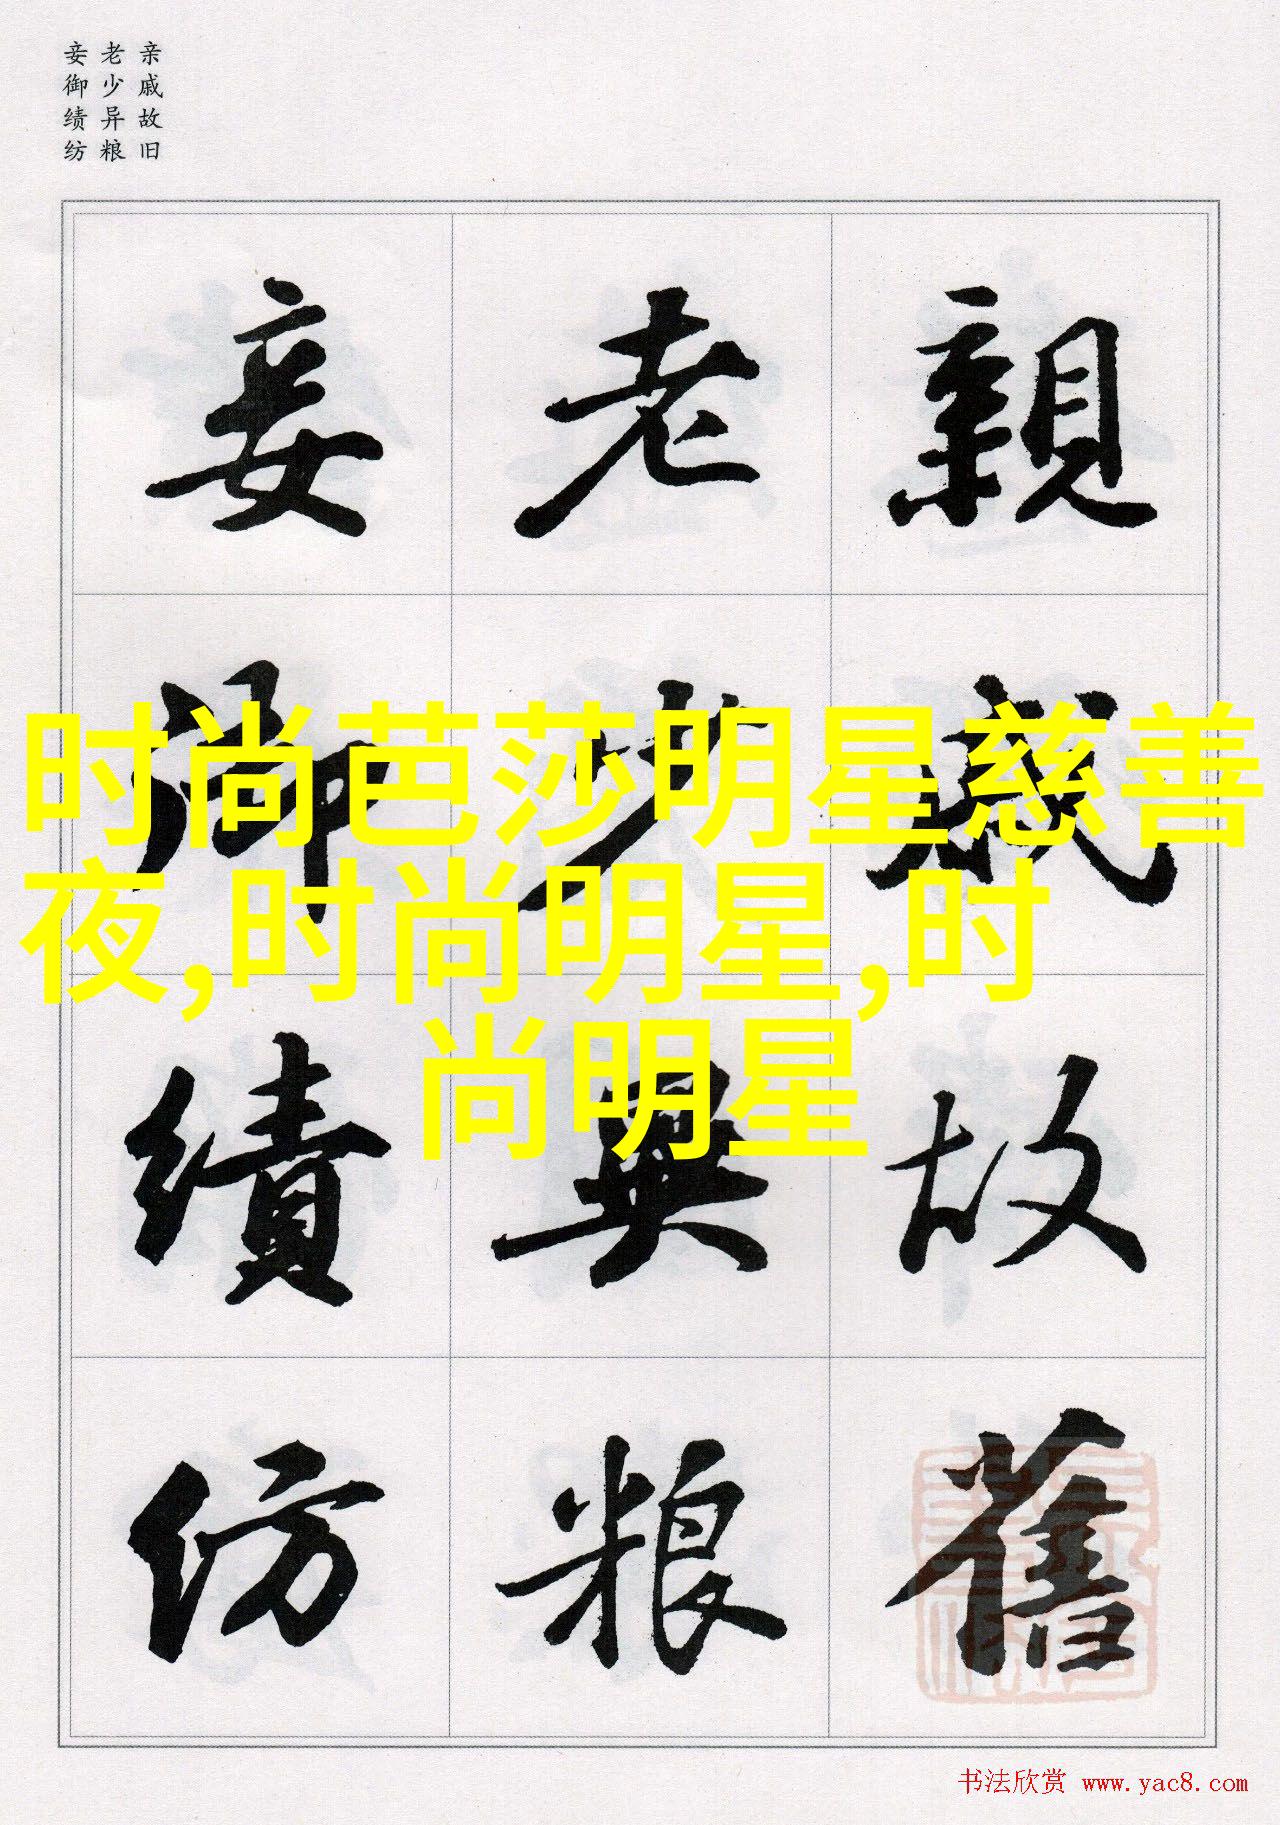 亲戚故旧
老少异粮
妾御绩纺
親戚故舊
老少異粮
妾御績紡
时尚芭莎明星慈善
夜,时尚明星,时
尚明星
书法欣赏 www.yac8.com